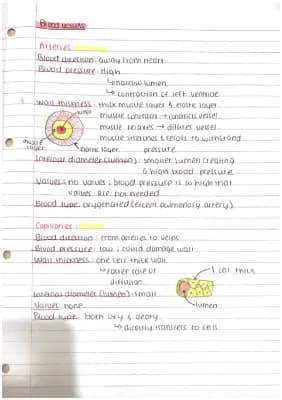 Blood vessels
Arteries:
Blood direction: away from heart
Blood pressure: High
↳ narrow lumen
↳ contraction of left ventricle
Wall thickness: thick muscle layer & elastic layer.
lumen
muscle contracts → constricts vessel
muscle relaxes → dilates vessel
muscle stretches & recoils to withstand
pressure
muscle layer
elastic layer
Internal diameter (lumen): smaller lumen creating
a high blood pressure.
Valves: no valves; blood pressure is so high that
valves are not needed
Blood type: oxygenated (except pulmonary artery)
Capillaries:
Blood direction: from arteries to veins
Blood pressure: low; could damage wall
Wall thickness: one cell thick wall
↳ faster rate of
diffusion
1 cell thick
Internal diameter (lumen): small
lumen
Valves: none
Blood type: both oxy & deoxy
↳ directly transfers to cells